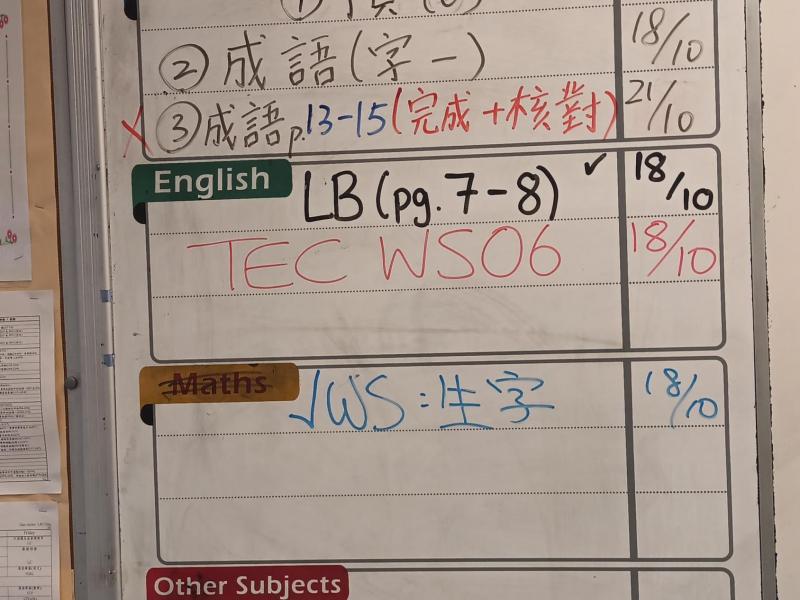 ② 成語(字一) 18/10
X ③ 成語 p.13-15(完成+核對) 21/10
English LB (pg. 7-8) ✓ 18/10
TEC WS06 18/10
Maths √WS:生字 18/10
Other Subjects